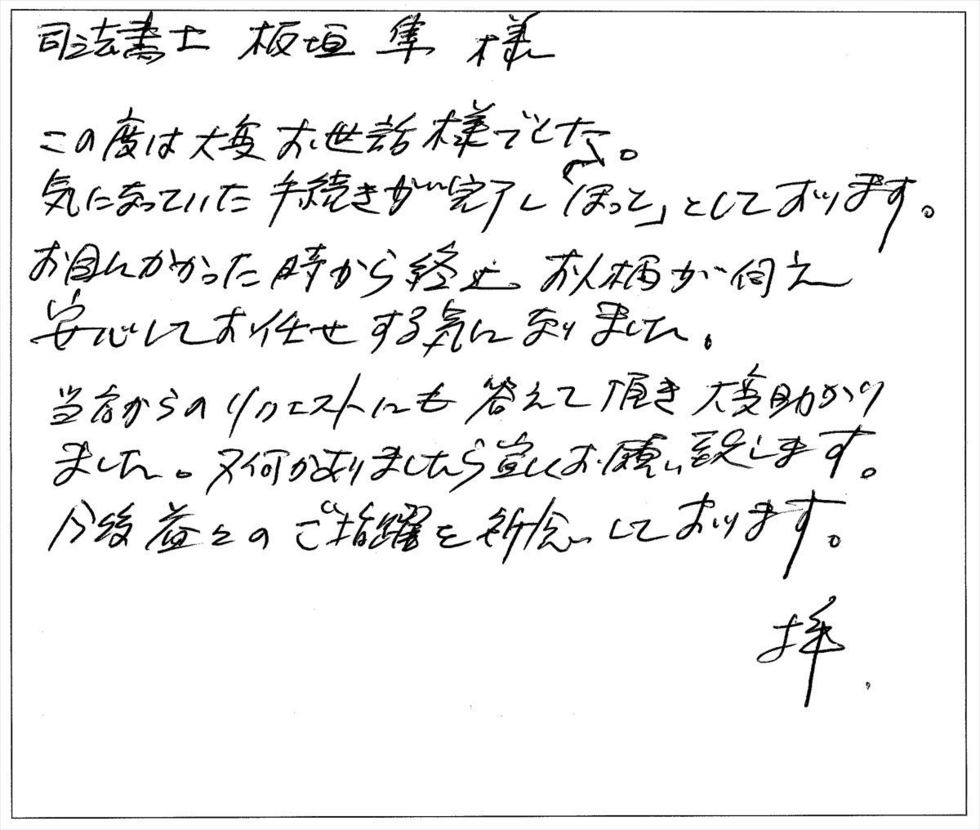 司法書士 板垣 隼 様
この度は大変お世話様でした。
気になっていた手続きが完了し「ほっと」としております。
お目にかかった時から終止お人柄が伺え
安心してお任せする気になりました。
当方からのリクエストにも答えて頂き大変助かり
ました。又何かありましたら宜しくお願い致します。
今後益々のご活躍を祈念しております。
拝.